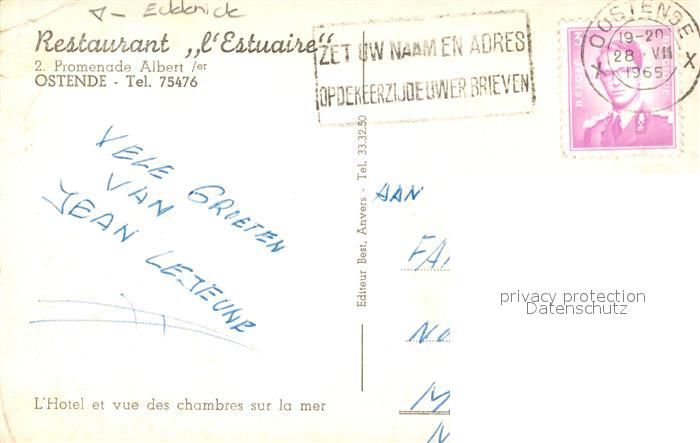 Restaurant „l'Estuaire"
2. Promenade Albert 1er
OSTENDE - Tel. 75476
ZET UW NAAM EN ADRES
OP DE KEERZIJDE UWER BRIEVEN
OOSTENDE
19-20
28 VII
1965
X X
BELGIE
VELE GROETEN
VAN
JEAN LEJEUNE
Editeur Best, Anvers - Tel. 33.32.50
AAN
FA
NO
M
N
privacy protection
Datenschutz
L'Hotel et vue des chambres sur la mer